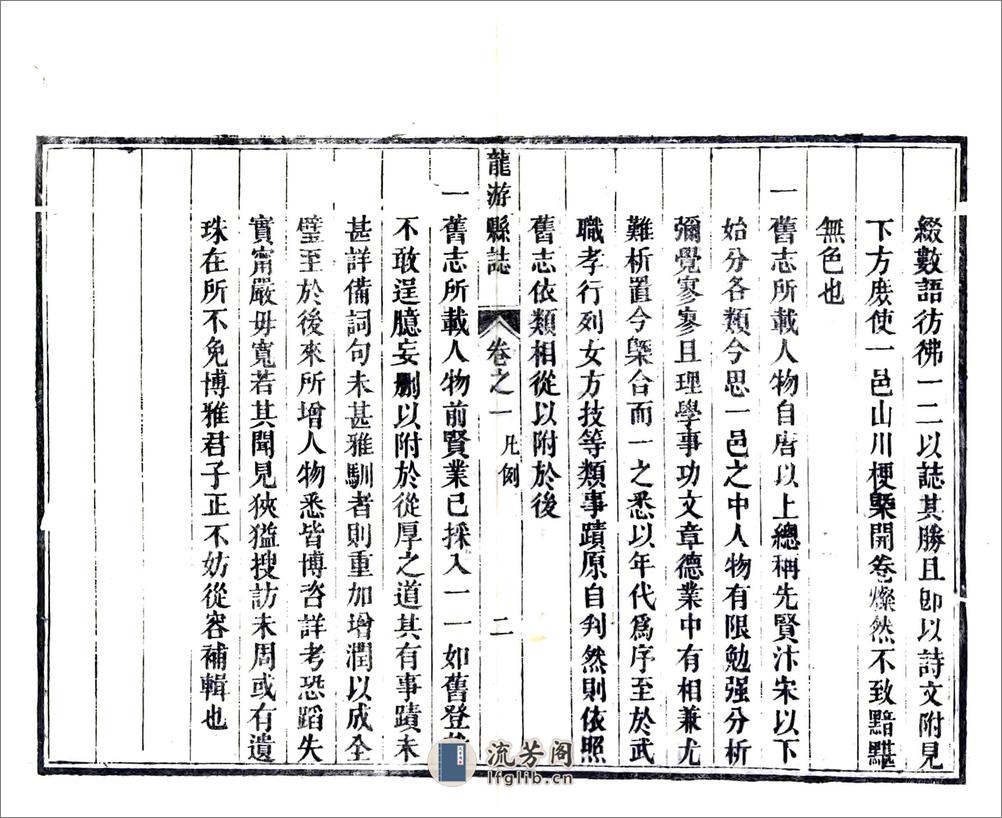 綴數語彷彿一二以誌其勝且卽以詩文附見
下方庻使一邑山川梗槩開卷燦然不致黯黮
無色也
一舊志所載人物自唐以上總稱先賢汴宋以下
始分各類今思一邑之中人物有限勉强分析
彌覺寥寥且理學事功文章德業中有相兼尤
難析置今槩合而一之悉以年代爲序至於武
職孝行列女方技等類事蹟原自判然則依照
舊志依類相從以附於後
龍游縣誌 卷之一 凡例 二
一舊志所載人物前賢業已採入一一如舊登
不敢逞臆妄删以附於從厚之道其有事蹟未
甚詳備詞句未甚雅馴者則重加增潤以成全
璧至於後來所增人物悉皆博咨詳考恐蹈失
實甯嚴毋寬若其聞見狹隘搜訪未周或有遺
珠在所不免博雅君子正不妨從容補輯也
流芳阁
lfglib.cn